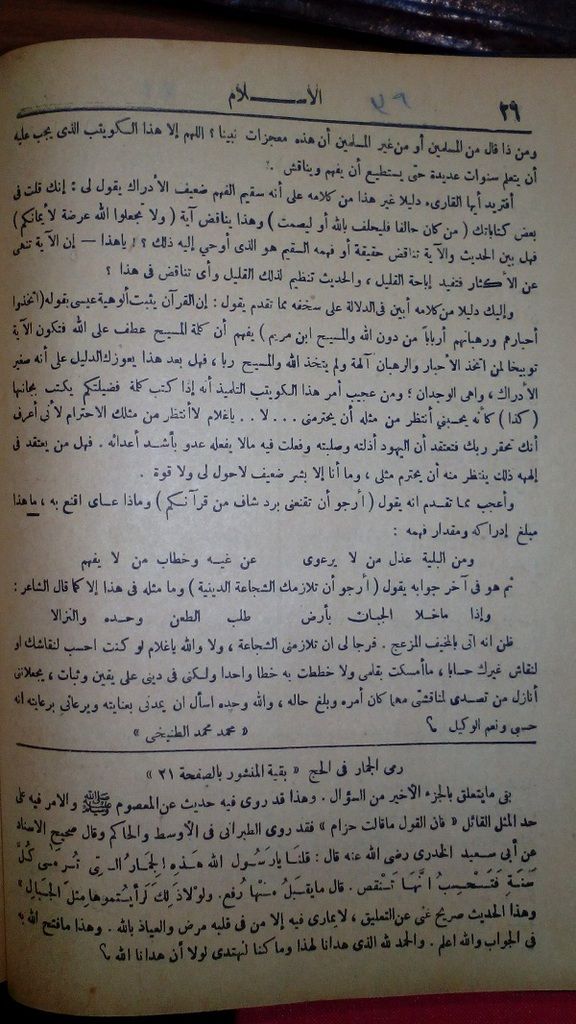 ٣٩ الإسلام ٣٩
ومن ذا قال من المسلمين أو من غير المسلمين أن هذه معجزات نبينا ؟ اللهم إلا هذا الكويتب الذى يجب عليه
أن يتعلم سنوات عديدة حتى يستطيع أن يفهم ويناقش .
أفتريد أيها القارىء دليلا غير هذا من كلامه على أنه سقيم الفهم ضعيف الأدراك يقول لى : إنك قلت فى
بعض كتاباتك ( من كان حالفا فليحلف بالله أو ليصمت ) وهذا يناقض آية ( ولا تجعلوا الله عرضة لأيمانكم )
فهل بين الحديث والآية تناقض حقيقة أو فهمه السقيم هو الذى أوحي إليه ذلك ؟ ! ياهذا — إن الآية تنهى
عن الأكثار فتفيد إباحة القليل ، والحديث تنظيم لذلك القليل وأى تناقض فى هذا ؟
وإليك دليلا من كلامه أبين فى الدلالة على سخفه مما تقدم يقول : إن القرآن يثبت ألوهية عيسى بقوله ( اتخذوا
أحبارهم ورهبانهم أرباباً من دون الله والمسيح ابن مريم ) يفهم أن كلمة المسيح عطف على الله فتكون الآية
توبيخا لمن اتخذ الأحبار والرهبان آلهة ولم يتخذ الله والمسيح ربا ، فهل بعد هذا يعوزك الدليل على أنه صغير
الأدراك ، واهى الوجدان ؛ ومن عجيب أمر هذا الكويتب التلميذ أنه إذا كتب كلمة فضيلتكم يكتب بجانبها
( كذا ) كأنه يحسبنى أنتظر من مثله أن يحترمنى ... لا .. ياغلام لا أنتظر من مثلك الاحترام لأنى أعرف
أنك تحقر ربك فتعتقد أن اليهود أذلته وصلبته وفعلت فيه مالا يفعله عدو بأشد أعدائه . فهل من يعتقد فى
إلهه ذلك ينتظر منه أن يحترم مثلى ، وما أنا إلا بشر ضعيف لاحول لى ولا قوة .
وأعجب مما تقدم انه يقول ( أرجو أن تقنعنى برد شاف من قرآنكم ) وماذا عساى اقنع به ، ماهذا
مبلغ إدراكه ومقدار فهمه :
ومن البلية عذل من لا يرعوى عن غيه وخطاب من لا يفهم
ثم هو فى آخر جوابه يقول ( أرجو أن تلازمك الشجاعة الدينية ) وما مثله فى هذا إلا كما قال الشاعر :
وإذا ماخلا الجبان بأرض طلب الطعن وحده والنزالا
ظن انه اتى بالمخيف المزعج . فرجا لى ان تلازمنى الشجاعة ، ولا والله ياغلام لو كنت احسب لنقاشك او
لنقاش غيرك حسابا ، ماأمسكت بقلمى ولا خططت به خطا واحدا ولكنى فى دينى على يقين وثبات ، يجعلانى
أنازل من تصدى لمناقشتى مهما كان أمره وبلغ حاله ، والله وحده اسأل ان يمدنى بعنايته ويرعانى برعايته انه
حسبى ونعم الوكيل ؟ « محمد محمد الطنيخى »
رمى الجمار فى الحج « بقية المنشور بالصفحة ٣١ »
بقى مايتعلق بالجزء الأخير من السؤال . وهذا قد روى فيه حديث عن المعصوم ﷺ والامر فيه على
حد المثل القائل « فان القول ماقالت حزام » فقد روى الطبرانى فى الأوسط والحاكم وقال صحيح الاسناد
عن أبى سعيد الخدرى رضى الله عنه قال : قلنَا يارَسُول الله هَذِهِ الجِمَار الَّتِى تُرمَى كُلَّ
سَنَة فَنَحْسِبُ انَّهَا تَنْقص . قال مايقبَلُ مِنْهَا رُفِع . ولوْلا ذَلِكَ لَرَأيْتموهَا مِثل الجِبَالِ »
وهذا الحديث صريح غنى عن التعليق ، لايمارى فيه إلا من فى قلبه مرض والعياذ بالله . وهذا مافتح الله به
فى الجواب والله اعلم . والحمد لله الذى هدانا لهذا وما كنا لنهتدى لولا أن هدانا الله ؟